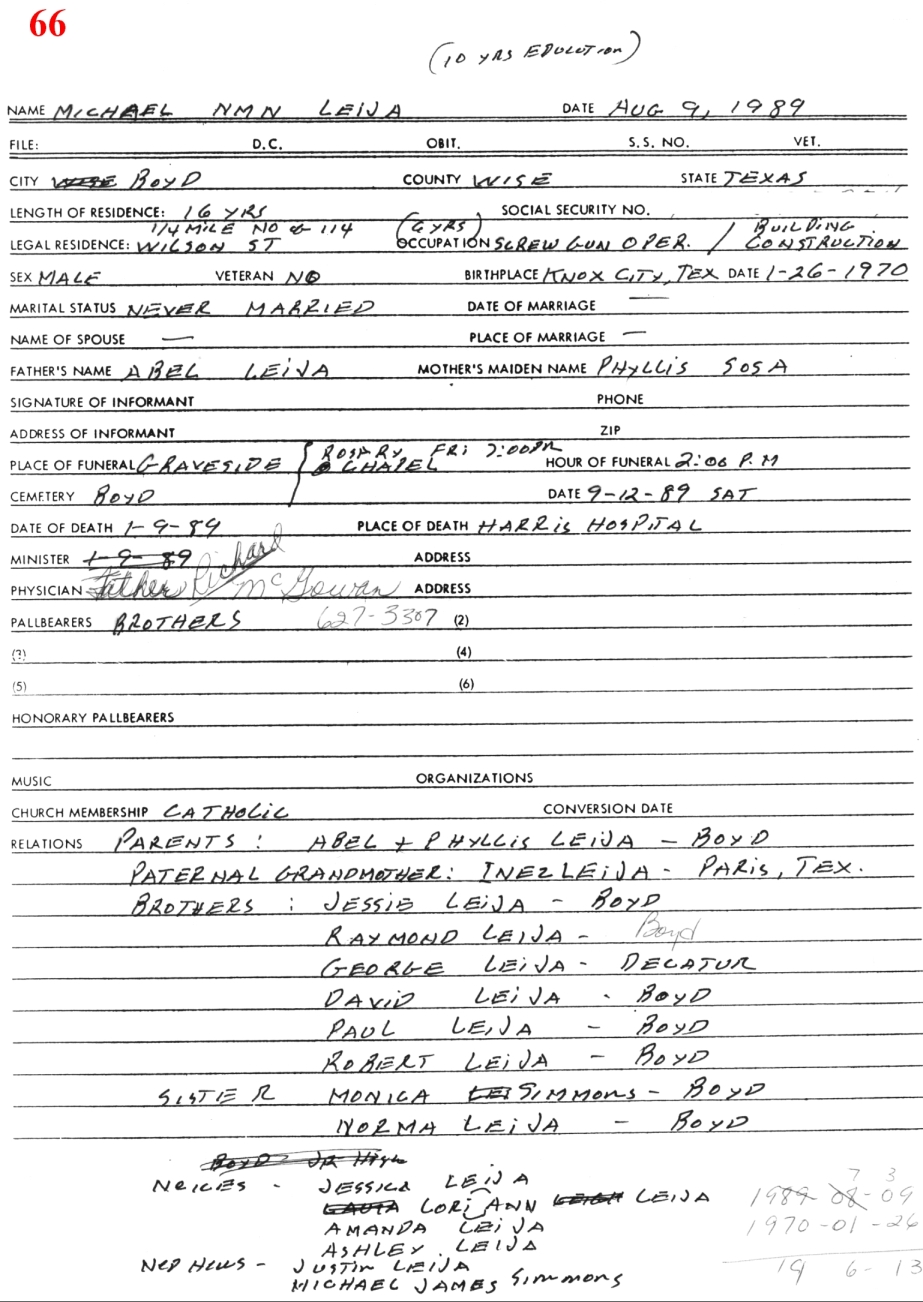 66
(10 YRS EDUCUTION)
NAME MICHAEL NMN LEIJA DATE AUG 9, 1989
FILE: D.C. OBIT. S.S. NO. VET.
CITY WISE BOYD COUNTY WISE STATE TEXAS
LENGTH OF RESIDENCE: 16 YRS SOCIAL SECURITY NO.
1/4 MILE NO of 114 (6 YRS) BUILDING
LEGAL RESIDENCE: WILSON ST OCCUPATION SCREW GUN OPER. / CONSTRUCTION
SEX MALE VETERAN NO BIRTHPLACE KNOX CITY, TEX DATE 1-26-1970
MARITAL STATUS NEVER MARRIED DATE OF MARRIAGE —
NAME OF SPOUSE — PLACE OF MARRIAGE —
FATHER'S NAME ABEL LEIJA MOTHER'S MAIDEN NAME PHYLLIS SOSA
SIGNATURE OF INFORMANT PHONE
ADDRESS OF INFORMANT ZIP
ROSARY FRI 7:00PM
PLACE OF FUNERAL GRAVESIDE @ CHAPEL HOUR OF FUNERAL 2:00 P.M
CEMETERY BOYD DATE 9-12-89 SAT
DATE OF DEATH 1-9-89 PLACE OF DEATH HARRIS HOSPITAL
MINISTER 1-9-89 ADDRESS
PHYSICIAN Father Richard McGowan ADDRESS
PALLBEARERS BROTHERS 627-3307 (2)
(3) (4)
(5) (6)
HONORARY PALLBEARERS
MUSIC ORGANIZATIONS
CHURCH MEMBERSHIP CATHOLIC CONVERSION DATE
RELATIONS PARENTS: ABEL + PHYLLIS LEIJA - BOYD
PATERNAL GRANDMOTHER: INEZ LEIJA - PARIS, TEX.
BROTHERS : JESSIE LEIJA - BOYD
RAYMOND LEIJA - Boyd
GEORGE LEIJA - DECATUR
DAVID LEIJA - BOYD
PAUL LEIJA - BOYD
ROBERT LEIJA - BOYD
SISTER MONICA LEI SIMMONS - BOYD
NORMA LEIJA - BOYD
BOYD JR High
NEICES - JESSICA LEIJA
LORI ANN LEIGH LEIJA
AMANDA LEIJA
ASHLEY LEIJA
NEPHEWS - JUSTIN LEIJA
MICHAEL JAMES SIMMONS
7 3
1989-08-09
1970-01-26
19 6-13